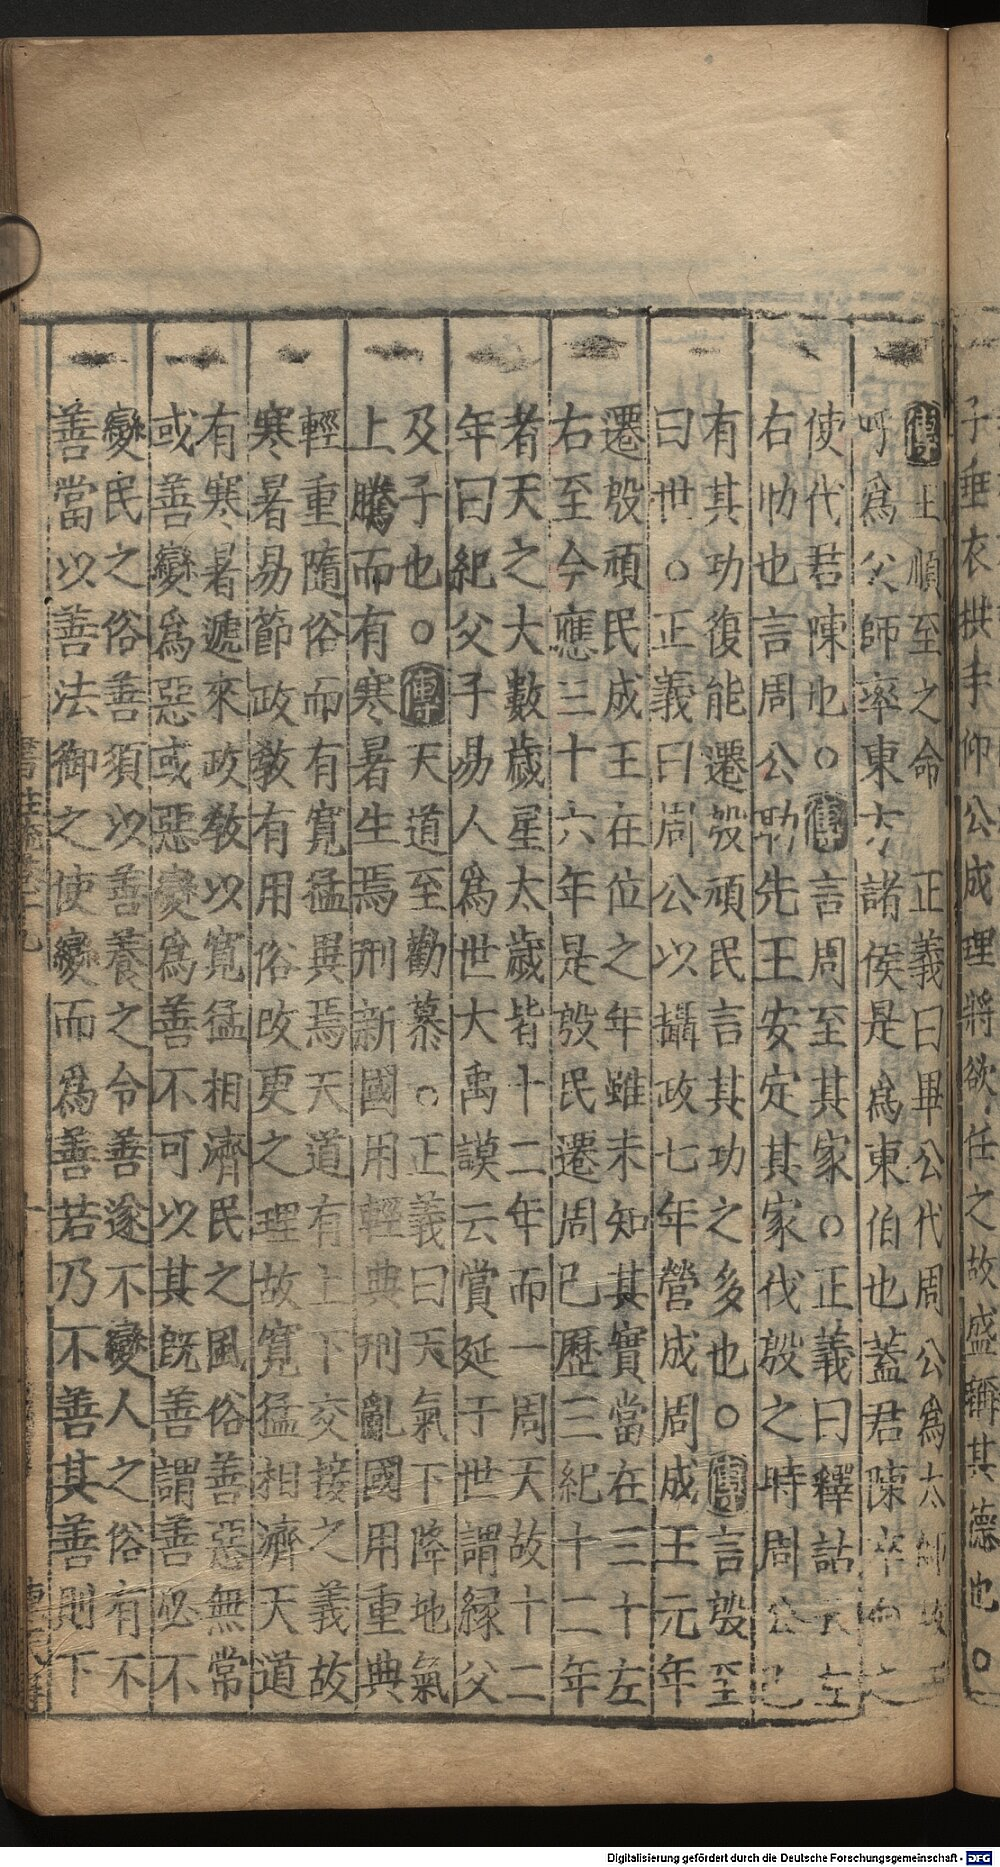 子垂衣拱手仰公成理將欲任之故盛稱其德也○
傳王順至之命　正義曰畢公代周公爲太師故王
呼爲父師率東方諸侯是爲東伯也蓋君陳卒命之
使代君陳也○傳言周至其家○正義曰釋詁云左
右助也言周公助先王安定其家伐殷之時周公已
有其功復能遷殷頑民言其功之多也○傳言殷至
曰世○正義曰周公以攝政七年營成周成王元年
遷殷頑民成王在位之年雖未知其實當在三十左
右至今應三十六年是殷民遷周已歷三紀十二年
者天之大數歲星太歲皆十二年而一周天故十二
年曰紀父子易人爲世大禹謨云賞延于世謂緣父
及子也○傳天道至勸慕○正義曰天氣下降地氣
上騰而有寒暑生焉刑新國用輕典刑亂國用重典
輕重隨俗而有寬猛異焉天道有上下交接之義故
寒暑易節政敎有用俗改更之理故寬猛相濟天道
有寒暑遞來政敎以寬猛相濟民之風俗善惡無常
或善變爲惡或惡變爲善不可以其旣善謂善必不
變民之俗善須以善養之令善遂不變人之俗有不
善當以善法御之使變而爲善若乃不善其善則下
Digitalisierung gefördert durch die Deutsche Forschungsgemeinschaft - DFG